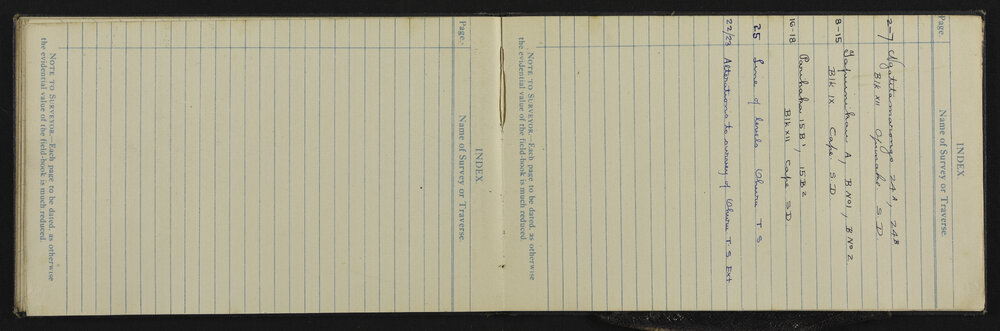 INDEX
Page. Name of Survey or Traverse.
2-7 Ngatitamarongo 24A, 24B
Blk XII Opunake S.D
8-15 Tapuinikau A, B No1, B No 2.
Blk IX Cape S.D.
16-18 Parihaka 15B1, 15B2
Blk XII Cape S.D.
25 Line of levels Ohura T S.
22/23 Alterations to survey of Ohura T S Ext
NOTE TO SURVEYOR.—Each page to be dated, as otherwise
the evidential value of the field-book is much reduced.
INDEX
Page. Name of Survey or Traverse.
NOTE TO SURVEYOR.—Each page to be dated, as otherwise
the evidential value of the field-book is much reduced.